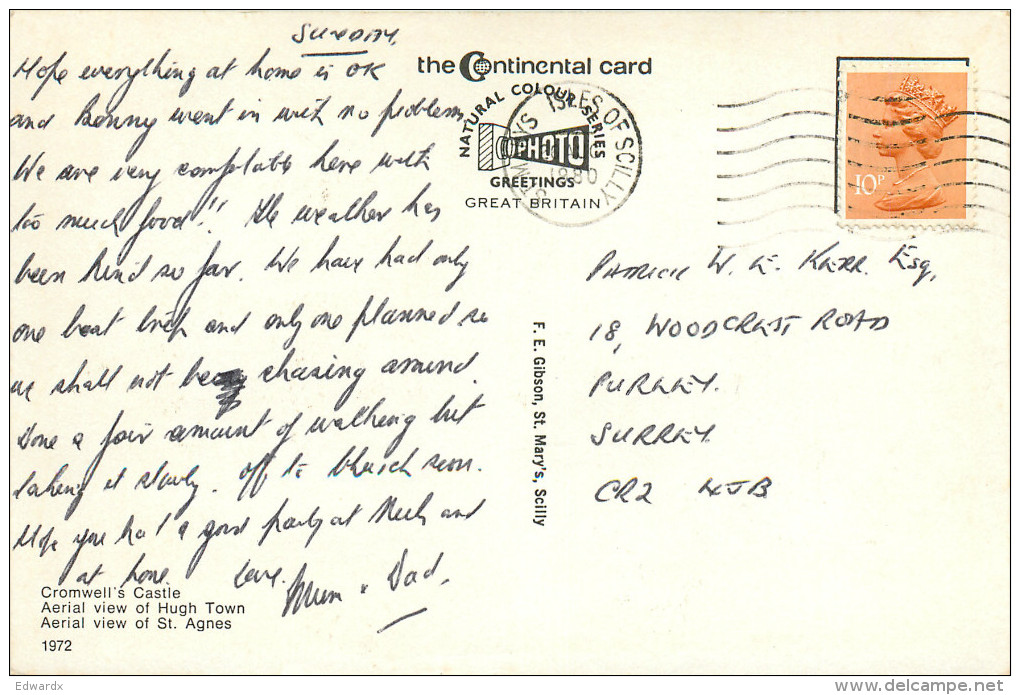 SUNDAY.
Hope everything at home is OK
and Benny went in with no problem.
We are very comfortable here with
too much food!! The weather has
been kind so far. We have had only
one boat trip and only one planned so
we shall not be chasing around.
Done a fair amount of walking but
taking it slowly. Off to church soon.
Hope you had a good party at and
at home. Love.
Mum & Dad.
Cromwell's Castle
Aerial view of Hugh Town
Aerial view of St. Agnes
1972
the Continental card
NATURAL COLOUR SERIES
PHOTO
GREETINGS
GREAT BRITAIN
ISLES OF SCILLY
1980
F. E. Gibson, St. Mary's, Scilly
10P
PATRICK W. E. KERR. ESQ,
18, WOODCREST ROAD
PURLEY.
SURREY.
CR2 4JB
Edwardx
www.delcampe.net